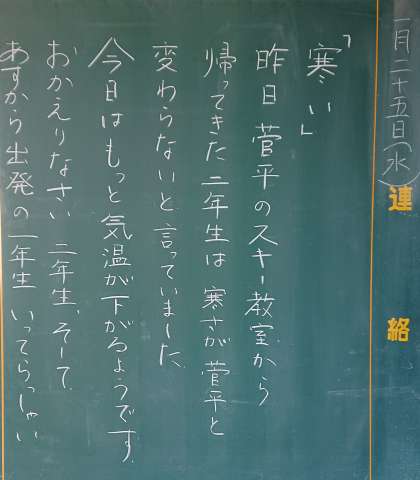 一月二十五日(水)
連絡
「寒い」
昨日 菅平のスキー教室から
帰ってきた二年生は 寒さが 菅平と
変わらないと言っていました。
今日はもっと気温が下がるようです。
おかえりなさい 二年生、そして
あすから出発の一年生 いってらっしゃい